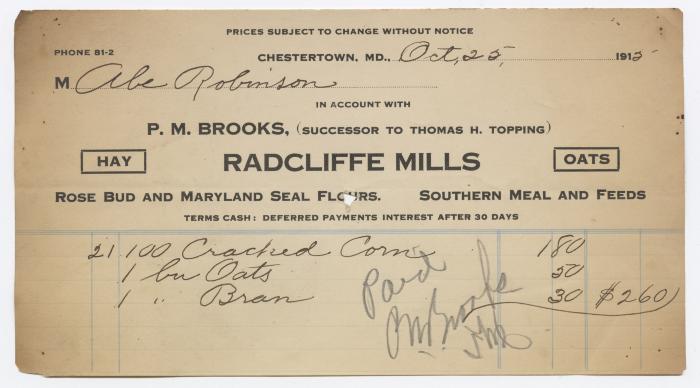 PRICES SUBJECT TO CHANGE WITHOUT NOTICE
PHONE 81-2
CHESTERTOWN, MD., Oct, 25, 1915
M Abe Robinson
IN ACCOUNT WITH
P. M. BROOKS, (SUCCESSOR TO THOMAS H. TOPPING)
HAY RADCLIFFE MILLS OATS
ROSE BUD AND MARYLAND SEAL FLOURS. SOUTHERN MEAL AND FEEDS
TERMS CASH: DEFERRED PAYMENTS INTEREST AFTER 30 DAYS
21 100 Cracked Corn 180
1 bu Oats 50
1 " Bran 30 $260
Paid
PM Brooks